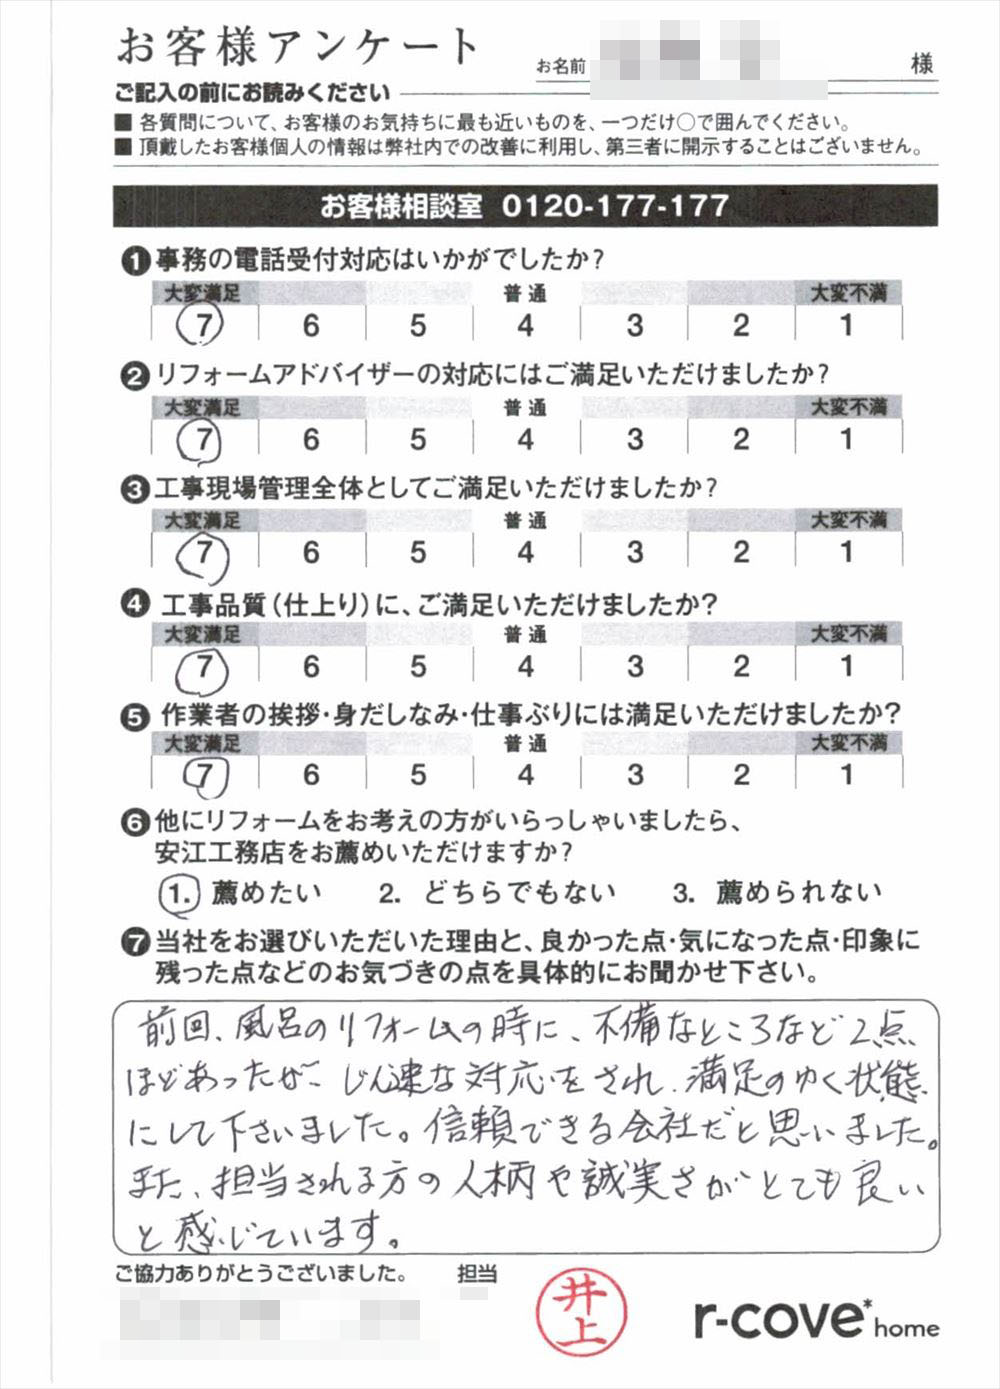 お客様アンケート
お名前 様
ご記入の前にお読みください
■ 各質問について、お客様のお気持ちに最も近いものを、一つだけ○で囲んでください。
■ 頂戴したお客様個人の情報は弊社内での改善に利用し、第三者に開示することはございません。
お客様相談室 0120-177-177
❶事務の電話受付対応はいかがでしたか?
大変満足 普通 大変不満
7 6 5 4 3 2 1
❷リフォームアドバイザーの対応にはご満足いただけましたか?
大変満足 普通 大変不満
7 6 5 4 3 2 1
❸工事現場管理全体としてご満足いただけましたか?
大変満足 普通 大変不満
7 6 5 4 3 2 1
❹工事品質(仕上り)に、ご満足いただけましたか?
大変満足 普通 大変不満
7 6 5 4 3 2 1
❺作業者の挨拶・身だしなみ・仕事ぶりには満足いただけましたか?
大変満足 普通 大変不満
7 6 5 4 3 2 1
❻他にリフォームをお考えの方がいらっしゃいましたら、
安江工務店をお薦めいただけますか?
1. 薦めたい 2. どちらでもない 3. 薦められない
❼当社をお選びいただいた理由と、良かった点・気になった点・印象に
残った点などのお気づきの点を具体的にお聞かせ下さい。
前回、風呂のリフォームの時に、不備なところなど2点
ほどあったが、じん速な対応をされ、満足のゆく状態
にして下さいました。信頼できる会社だと思いました。
また、担当される方の人柄や誠実さがとても良い
と感じています。
ご協力ありがとうございました。 担当
井上
r-cove* home